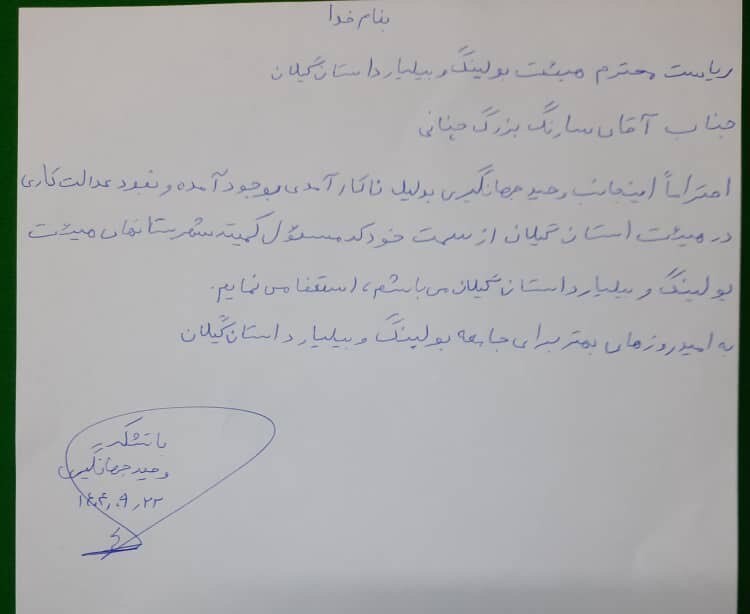 بنام خدا
ریاست محترم هیئت بولینگ و بیلیارد استان گیلان
جناب آقای سارنگ بزرگ جهانی
احتراماً اینجانب وحید جهانگیری بدلیل ناکارآمدی بوجود آمده و نبود عدالت کاری
در هیئت استان گیلان از سمت خود که مسئول کمیته شهرستانهای هیئت
بولینگ و بیلیارد استان گیلان می باشم، استعفا می نمایم.
به امید روزهای بهتر برای جامعه بولینگ و بیلیارد استان گیلان
با تشکر
وحید جهانگیری
۱۴۰۴٫۰۹٫۲۲